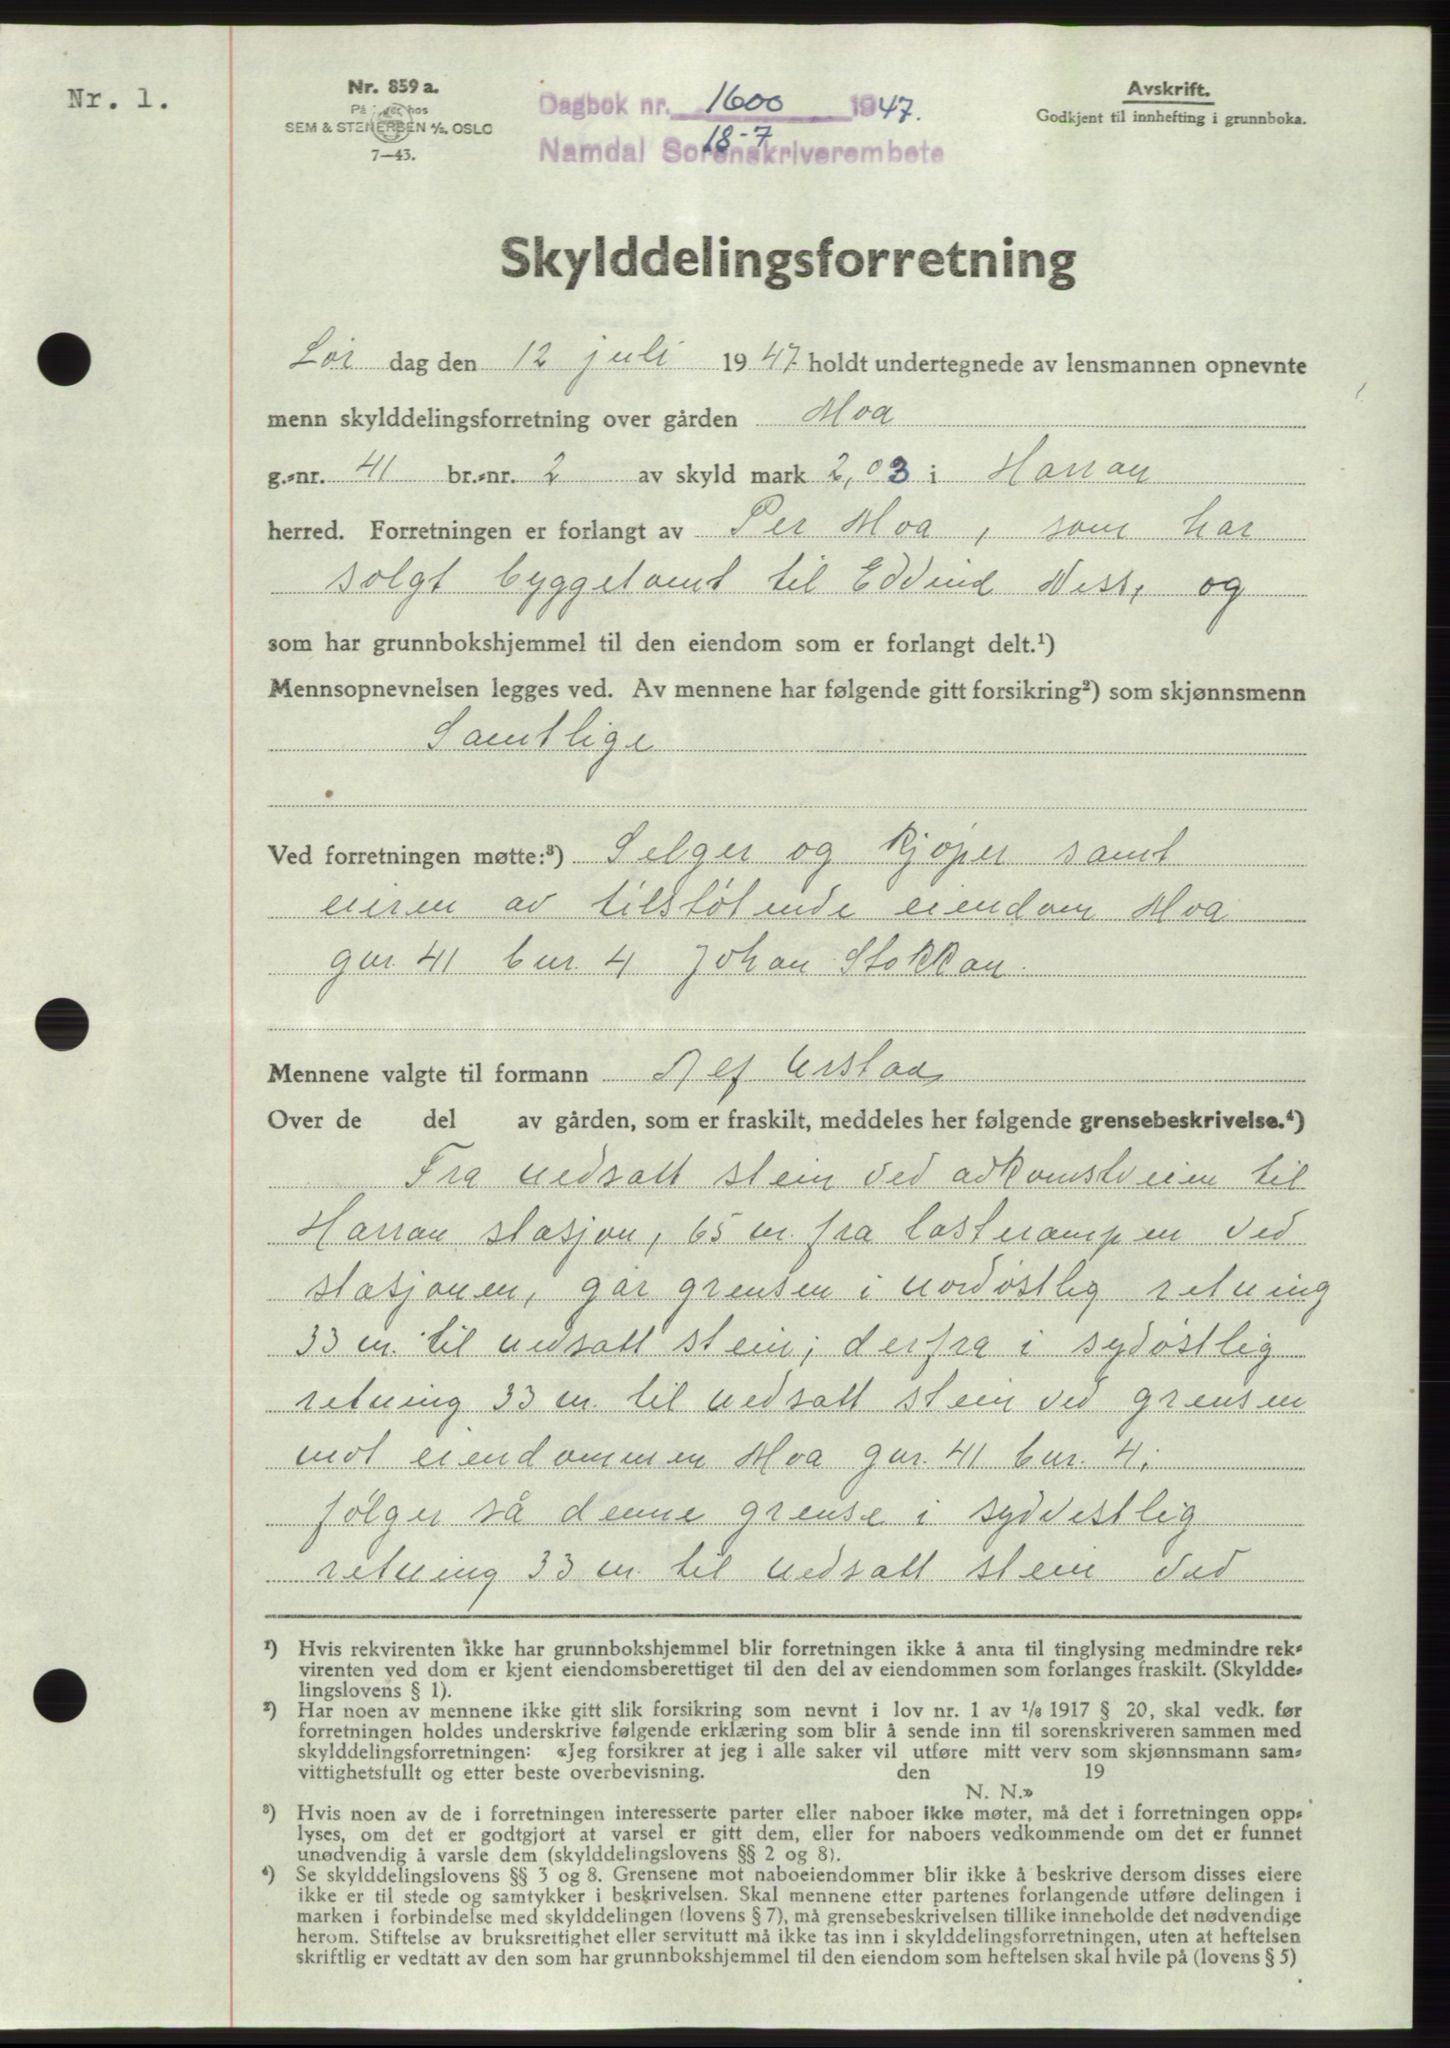 Nr. 1.
Nr. 859 a.
På hos
SEM & STENERSEN A/S, OSLO
7—43.
Dagbok nr. 1600 1947.
18-7
Namdal Sorenskriverembete
Avskrift.
Godkjent til innhefting i grunnboka.
Skylddelingsforretning
Lør dag den 12 juli 1947 holdt undertegnede av lensmannen opnevnte
menn skylddelingsforretning over gården Moa
g.-nr. 41 br.-nr. 2 av skyld mark 2,03 i Harran
herred. Forretningen er forlangt av Per Moa, som har
solgt byggetomt til Edvind Ness, og
som har grunnbokshjemmel til den eiendom som er forlangt delt.¹)
Mennsopnevnelsen legges ved. Av mennene har følgende gitt forsikring²) som skjønnsmenn
Samtlige
Ved forretningen møtte:³) Selger og kjøper samt
eieren av tilstøtende eiendom Moa
gnr. 41 bnr. 4 Johan Stokkan.
Mennene valgte til formann Alf Urstad
Over de del av gården, som er fraskilt, meddeles her følgende grensebeskrivelse.⁴)
Fra nedsatt stein ved adkomstveien til
Harran stasjon, 65 m. fra lasterampen ved
stasjonen, går grensen i nordøstlig retning
33 m. til nedsatt stein; derfra i sydøstlig
retning 33 m. til nedsatt stein ved grensen
mot eiendommen Moa gnr. 41 bnr. 4;
følger så denne grense i sydvestlig
retning 33 m. til nedsatt stein ved
¹) Hvis rekvirenten ikke har grunnbokshjemmel blir forretningen ikke å anta til tinglysing medmindre rek-
virenten ved dom er kjent eiendomsberettiget til den del av eiendommen som forlanges fraskilt. (Skyldde-
lingslovens § 1).
²) Har noen av mennene ikke gitt slik forsikring som nevnt i lov nr. 1 av 1/8 1917 § 20, skal vedk. før
forretningen holdes underskrive følgende erklæring som blir å sende inn til sorenskriveren sammen med
skylddelingsforretningen: «Jeg forsikrer at jeg i alle saker vil utføre mitt verv som skjønnsmann sam-
vittighetsfullt og etter beste overbevisning. den 19
N. N.»
³) Hvis noen av de i forretningen interesserte parter eller naboer ikke møter, må det i forretningen opp-
lyses, om det er godtgjort at varsel er gitt dem, eller for naboers vedkommende om det er funnet
unødvendig å varsle dem (skylddelingslovens §§ 2 og 8).
⁴) Se skylddelingslovens §§ 3 og 8. Grensene mot naboeiendommer blir ikke å beskrive dersom disses eiere
ikke er til stede og samtykker i beskrivelsen. Skal mennene etter partenes forlangende utføre delingen i
marken i forbindelse med skylddelingen (lovens § 7), må grensebeskrivelsen tillike inneholde det nødvendige
herom. Stiftelse av bruksrettighet eller servitutt må ikke tas inn i skylddelingsforretningen, uten at heftelsen
skriftlig er vedtatt av den som har grunnbokshjemmel til den eiendom som heftelsen skal hvile på (lovens § 5)